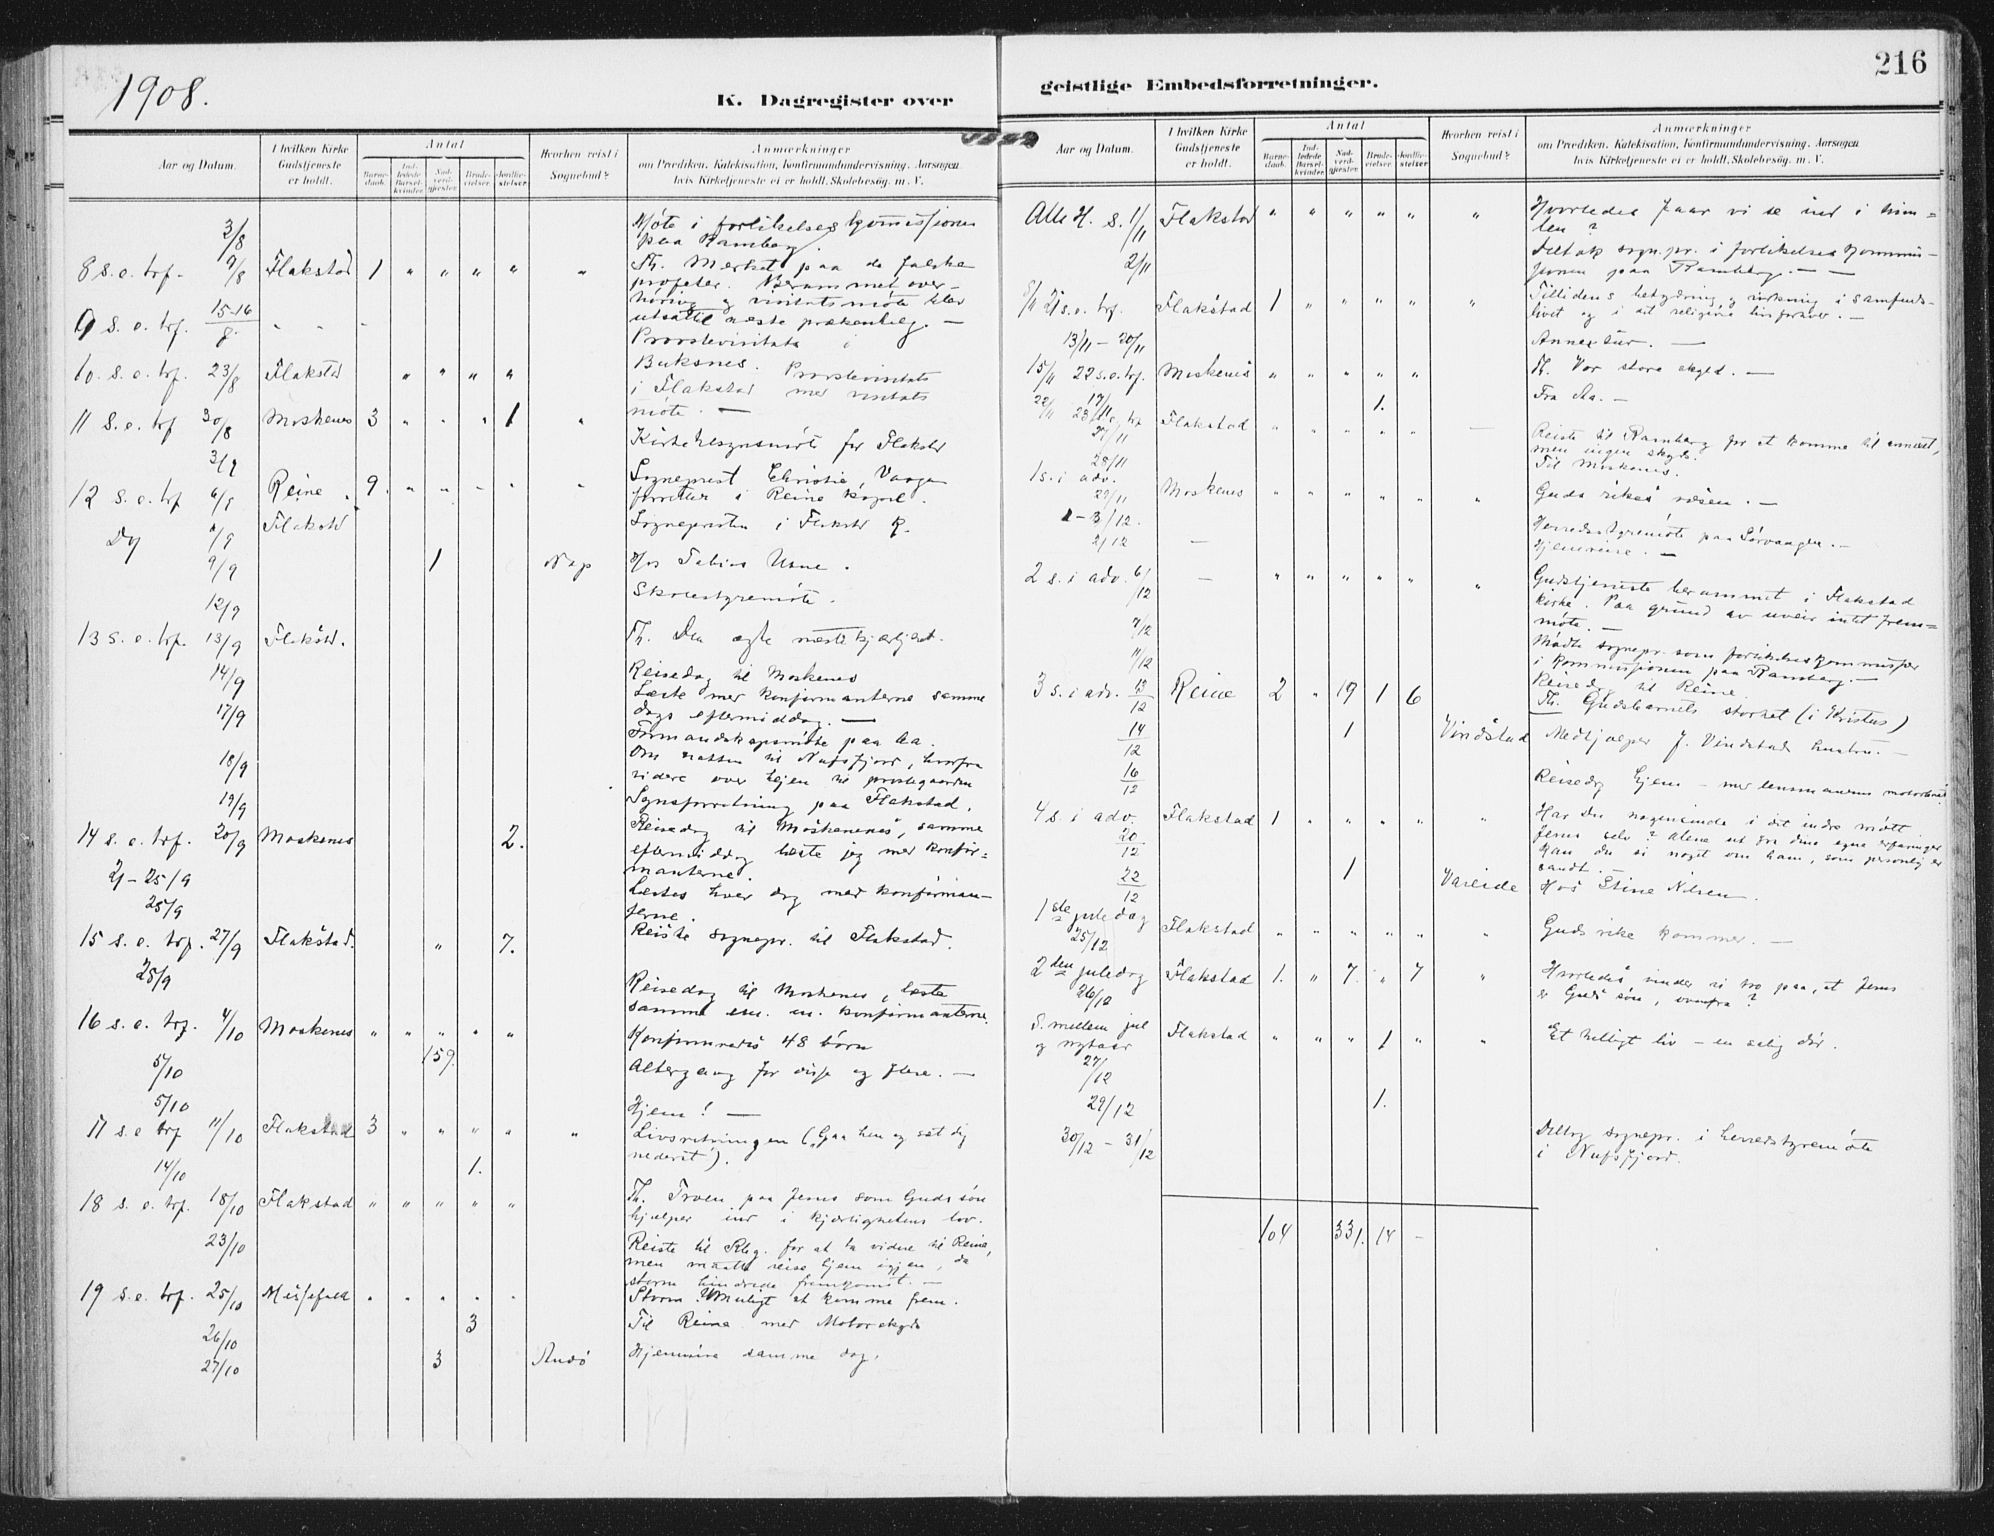 1908.
K. Dagregister over
Aar og Datum.
I hvilken Kirke Gudstjeneste er holdt.
Antal
Barnedaab.
Indledede Barselkvinder.
Nadverdgjester.
Brudevielser.
Jordfæstelser
Hvorhen reist i Sognebud?
Anmærkninger
om Prædiken, Katekisation, Konfirmandundervisning, Aarsagen
hvis Kirketjeneste ei er holdt, Skolebesøg, m. V.
3/8 Møte i forlikelseskommissionen
paa Ramberg.
8 s. e. trf. 9/8 Flakstad 1 " " " " " Th. Merket paa de falske
profeter. Berammet over-
høring og visitatsmøte blev
9 s. e. trf. 15-16/8 - - - utsat til næste prækenhelg. —
Provstevisitats i
10. s. e. trf. 23/8 Flakstad " " " " Buksnes. Provstevisitats
i Flakstad med visitats
11 s. e. trf 30/8 Moskenes 3 " " " 1 " møte. —
3/9 Kirketilsynsmøte for Flakstd
12 s. e. trf 6/9 Reine. 9. " " " " " Sogneprest Christie, Vaagan
forretter i Reine kapel.
Do /9 Flakstd Sognepresten i Flakstd K.
9/9 1 Nap Hos Tobias Usne.
12/9 Skolestyremøte.
13 s. e. trf. 13/9 Flakstd. Th. Den ægte næstekjærlighet.
14/9 Reisedag til Moskenes
Læste med konfirmanterne samme
17/9 dags eftermiddag. —
Formandskapsmøte paa Aa.
18/9 Om natten til Nufsfjord, hvorfra
videre over heien til prestegaarden
19/9 Synsforretning paa Flakstad.
14 s. e. trf. 20/9 Moskenes 2. Reisedag til Moskenes, samme
eftermiddag læste jeg med konfir-
21-25/9 manterne.
25/9 Læstes hver dag med konfirman-
terne.
15 s. e. trf. 27/9 Flakstad. " 7. Reiste sognepr. til Flakstad.
28/9 Reisedag til Moskenes, læste
samme em. m. konfirmanterne.
16 s. e. trf. 4/10 Moskenes " " " " " Konfirmredes 48 børn
5/10 159. Altergang for disse og flere. —
5/10 Hjem! —
17 s. e trf 11/10 Flakstad 3 " " " " " Livsretningen („Gaa hen og sæt dig
14/10 1. nederst").
18 s. e. trf. 18/10 Flakstad " " " " " Th. Troen paa Jesus som Guds søn
hjælper ind i kjærlighetens lov.
23/10 Reiste til Rbg. for at ta videre til Reine,
men maatte reise hjem igjen, da
storm hindrede fremkomst. —
19 s. e. trf. 25/10 Messefald " " " " " Storm. Umuligt at komme frem.
26/10 3 Til Reine med Motorskyds
27/10 3 Andø Hjemreise samme dag.
216
geistlige Embedsforretninger.
Aar og Datum.
I hvilken Kirke Gudstjeneste er holdt.
Antal
Barnedaab.
Indledede Barselkvinder.
Nadverdgjester.
Brudevielser.
Jordfæstelser
Hvorhen reist i Sognebud?
Anmærkninger
om Prædiken, Katekisation, Konfirmandundervisning, Aarsagen
hvis Kirketjeneste ei er holdt, Skolebesøg, m. V.
Alle H. s. 1/11 Flakstad " " " " " " Hvorledes faar vi se ind i him=
len?
2/11 Deltok sogn.pr. i forlikelseskommis-
sionen paa Ramberg. — —
8/11 21 s. e. trf. Flakstad 1 " " " " " Tillidens betydning og virkning i samfunds-
livet og i det religiøse livsforhver. —
13/11 — 20/11 Annextur. —
15/11 22 s. e. trf. Moskenes " " " " " Th. Vor store skyld. —
17/11 1. Fra Aa. —
22/11 23 s. e. trf Flakstad " " " " " —
27/11 Reiste til Ramberg for at komme til annext,
men ingen skyds.
28/11 Til Moskenes.
1 s. i adv. 29/11 Moskenes " " " " " " Guds rikes væsen. —
1-3/12. Herredsstyremøte paa Sørvaagen. —
2/12 — Hjemreise. —
2 s. i adv. 6/12 — " " " " " " Gudstjeneste berammet i Flakstad
kirke. Paa grund av uveir intet frem=
møte. —
7/12 Mødte sognepr. som forlikelseskommissær
i kommissionen paa Ramberg. —
11/12 Reisedag til Reine.
3 s. i adv. 13/12 Reine 2 " 19 1 6 Th. Gudsbarnets storhet (i Kristus)
14/12 1 Vindstad Medhjælper J. Vindstads hustru. —
16/12 Reisedag hjem — med lensmannens motorbaat.
4 s. i adv. 20/12 Flakstad 1 " " " " " Har du nogensinde i det indre møtt
Jesus selv? Alene ut fra dine egne erfaringer
kan du si noget om ham, som personlig er
sandt. —
22/12 1 Vareide Hos Stine Nilsen.
1ste juledag 25/12 Flakstad " " " " " " Guds rike kommer. —
2den juledag 26/12 Flakstad 1. " 7. " 7 " Hvorledes vinder vi tro paa, at Jesus
er Guds søn, ovenfra?
S. mellem jul
og nytaar 27/12 Flakstad " " " 1 " " Et helligt liv — en salig død.
29/12 1.
30/12 — 31/12 Deltog sognepr. i herredstyremøte
i Nufsfjord.
104 331. 14 -